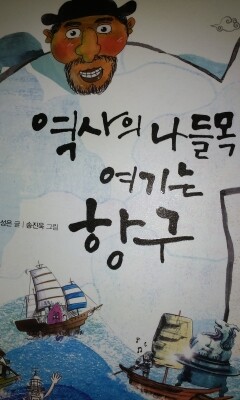 역사의 나들목
여기는
항구
성은 글 | 송진욱 그림